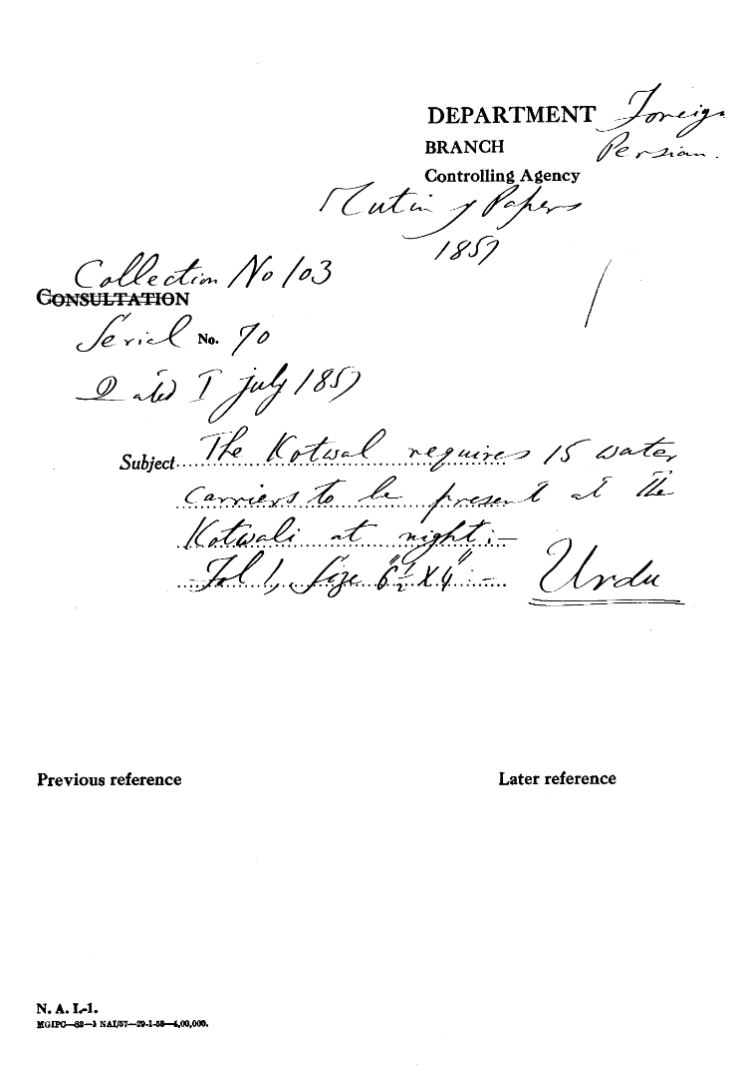 DEPARTMENT Foreign
BRANCH Persian.
Controlling Agency
Mutiny Papers
1857
Collection No 103
CONSULTATION
Serial No. 70
Dated 1 july 1857
Subject The Kotwal requires 15 water
carriers to be present at the
Kotwali at night:-
Fol 1, Size 6½" X 4" - Urdu
Previous reference
Later reference
N. A. I.-1.
MGIPC—82—1 NAI/57—29-1-58—4,00,000.